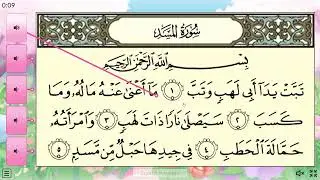 0:09
سُورَةُ المَسَد
بِسْمِ اللَّهِ الرَّحْمَٰنِ الرَّحِيمِ
تَبَّتْ يَدَآ أَبِي لَهَبٍ وَتَبَّ ١ مَآ أَغْنَىٰ عَنْهُ مَالُهُۥ وَمَا
كَسَبَ ٢ سَيَصْلَىٰ نَارًا ذَاتَ لَهَبٍ ٣ وَٱمْرَأَتُهُۥ
حَمَّالَةَ ٱلْحَطَبِ ٤ فِي جِيدِهَا حَبْلٌ مِّن مَّسَدٍۭ ٥